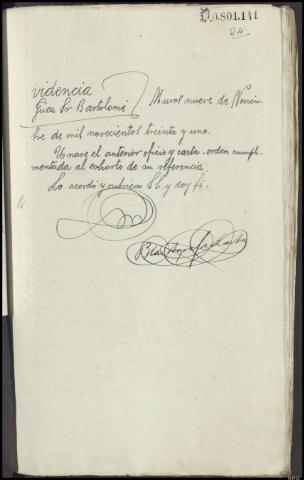 D.0.801.141
24
videncia
Juez Sr Bartolomé } Muros nueve de Noviem-
bre de mil novecientos treinta y uno.
Unase el anterior oficio y carta-orden cumpli-
mentada al exhorto de su referencia.
Lo acordó y rubrica S.S. y doy fé.